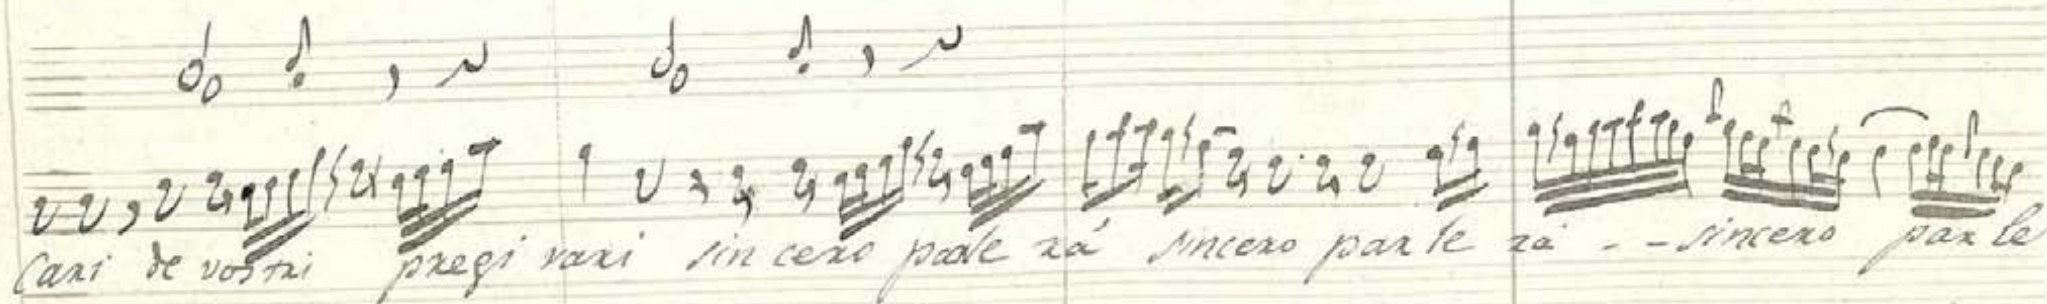 Cari de vostri pregi rari sincero parle rá sincero parle rá - - sincero parle